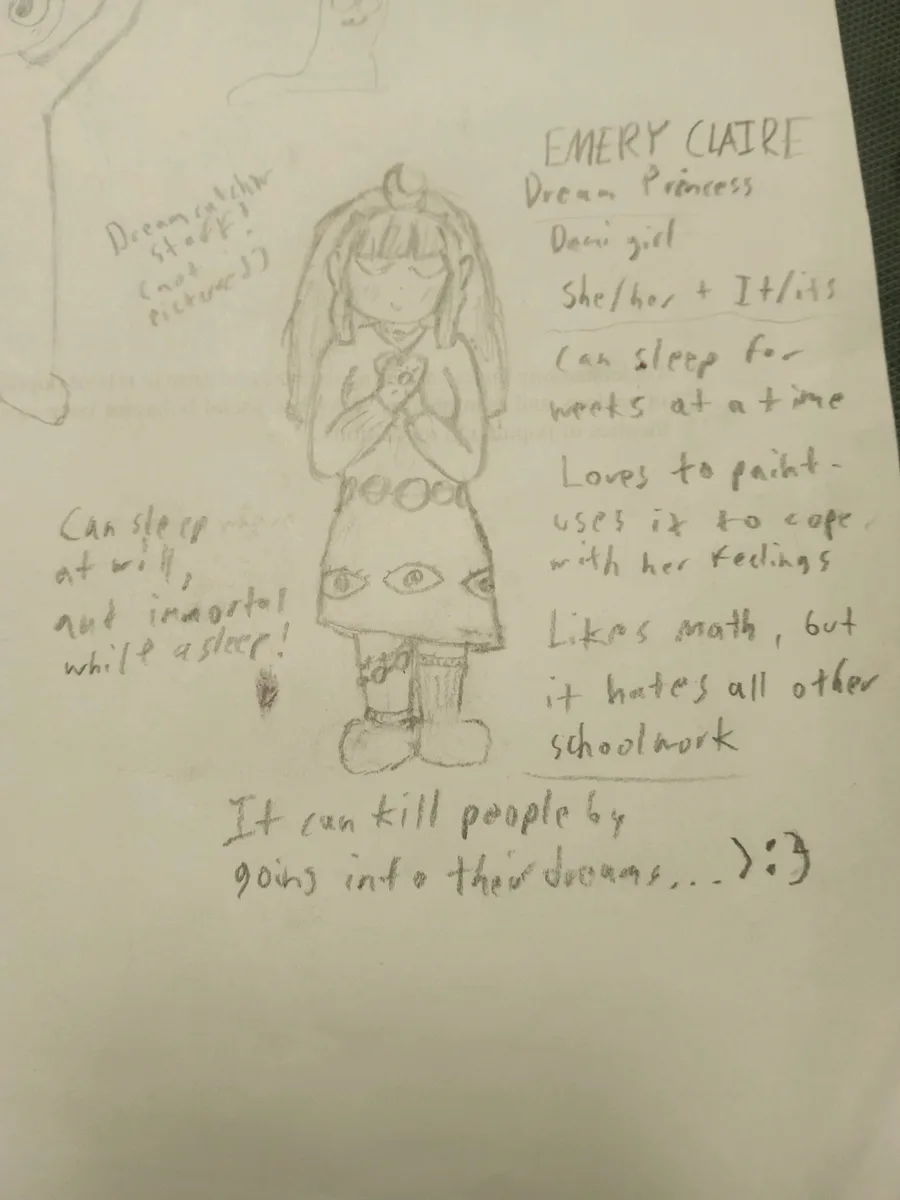 EMERY CLAIRE
Dream Princess
Demi girl
She/her + It/its
Can sleep for
weeks at a time
Loves to paint-
uses it to cope
with her feelings
Likes math, but
it hates all other
schoolwork
Dreamcatcher
staff!
(not
pictured)
Can sleep
at will,
and immortal
while asleep!
It can kill people by
going into their dreams... >:}